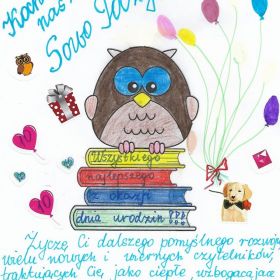 Sowo
Wszystkiego
najlepszego
z okazji
dnia urodzin!!!
Życzę Ci dalszego pomyślnego rozwoju
wielu nowych i wiernych czytelników
traktujących Cię, jako ciepłe, wzbogacające